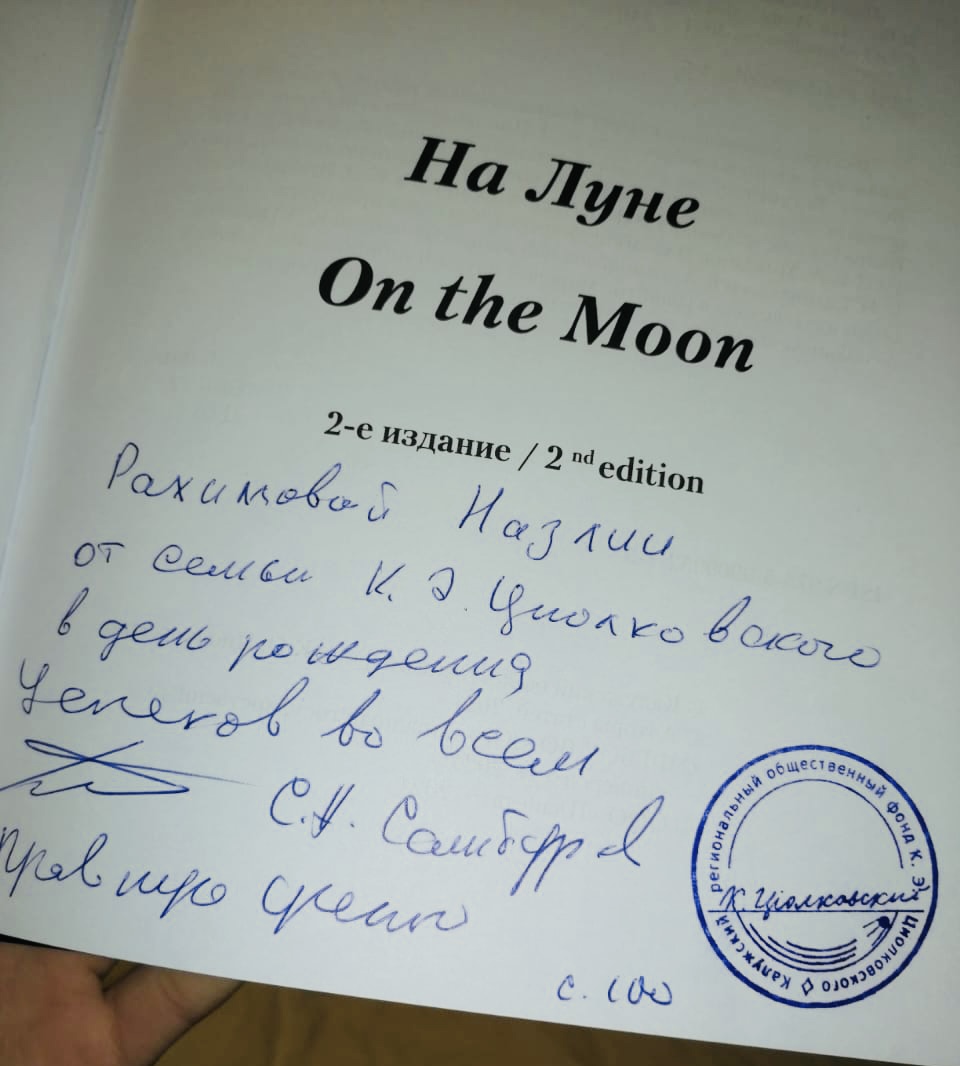 На Луне
On the Moon
2-е издание / 2 nd edition
Рахимовой Назлии
от семьи К. Э. Циолковского
в день рождения
Успехов во всем
С.Н. Самбуров
с. 100
Калужский региональный общественный фонд К. Э. Циолковского
К. Циолковский